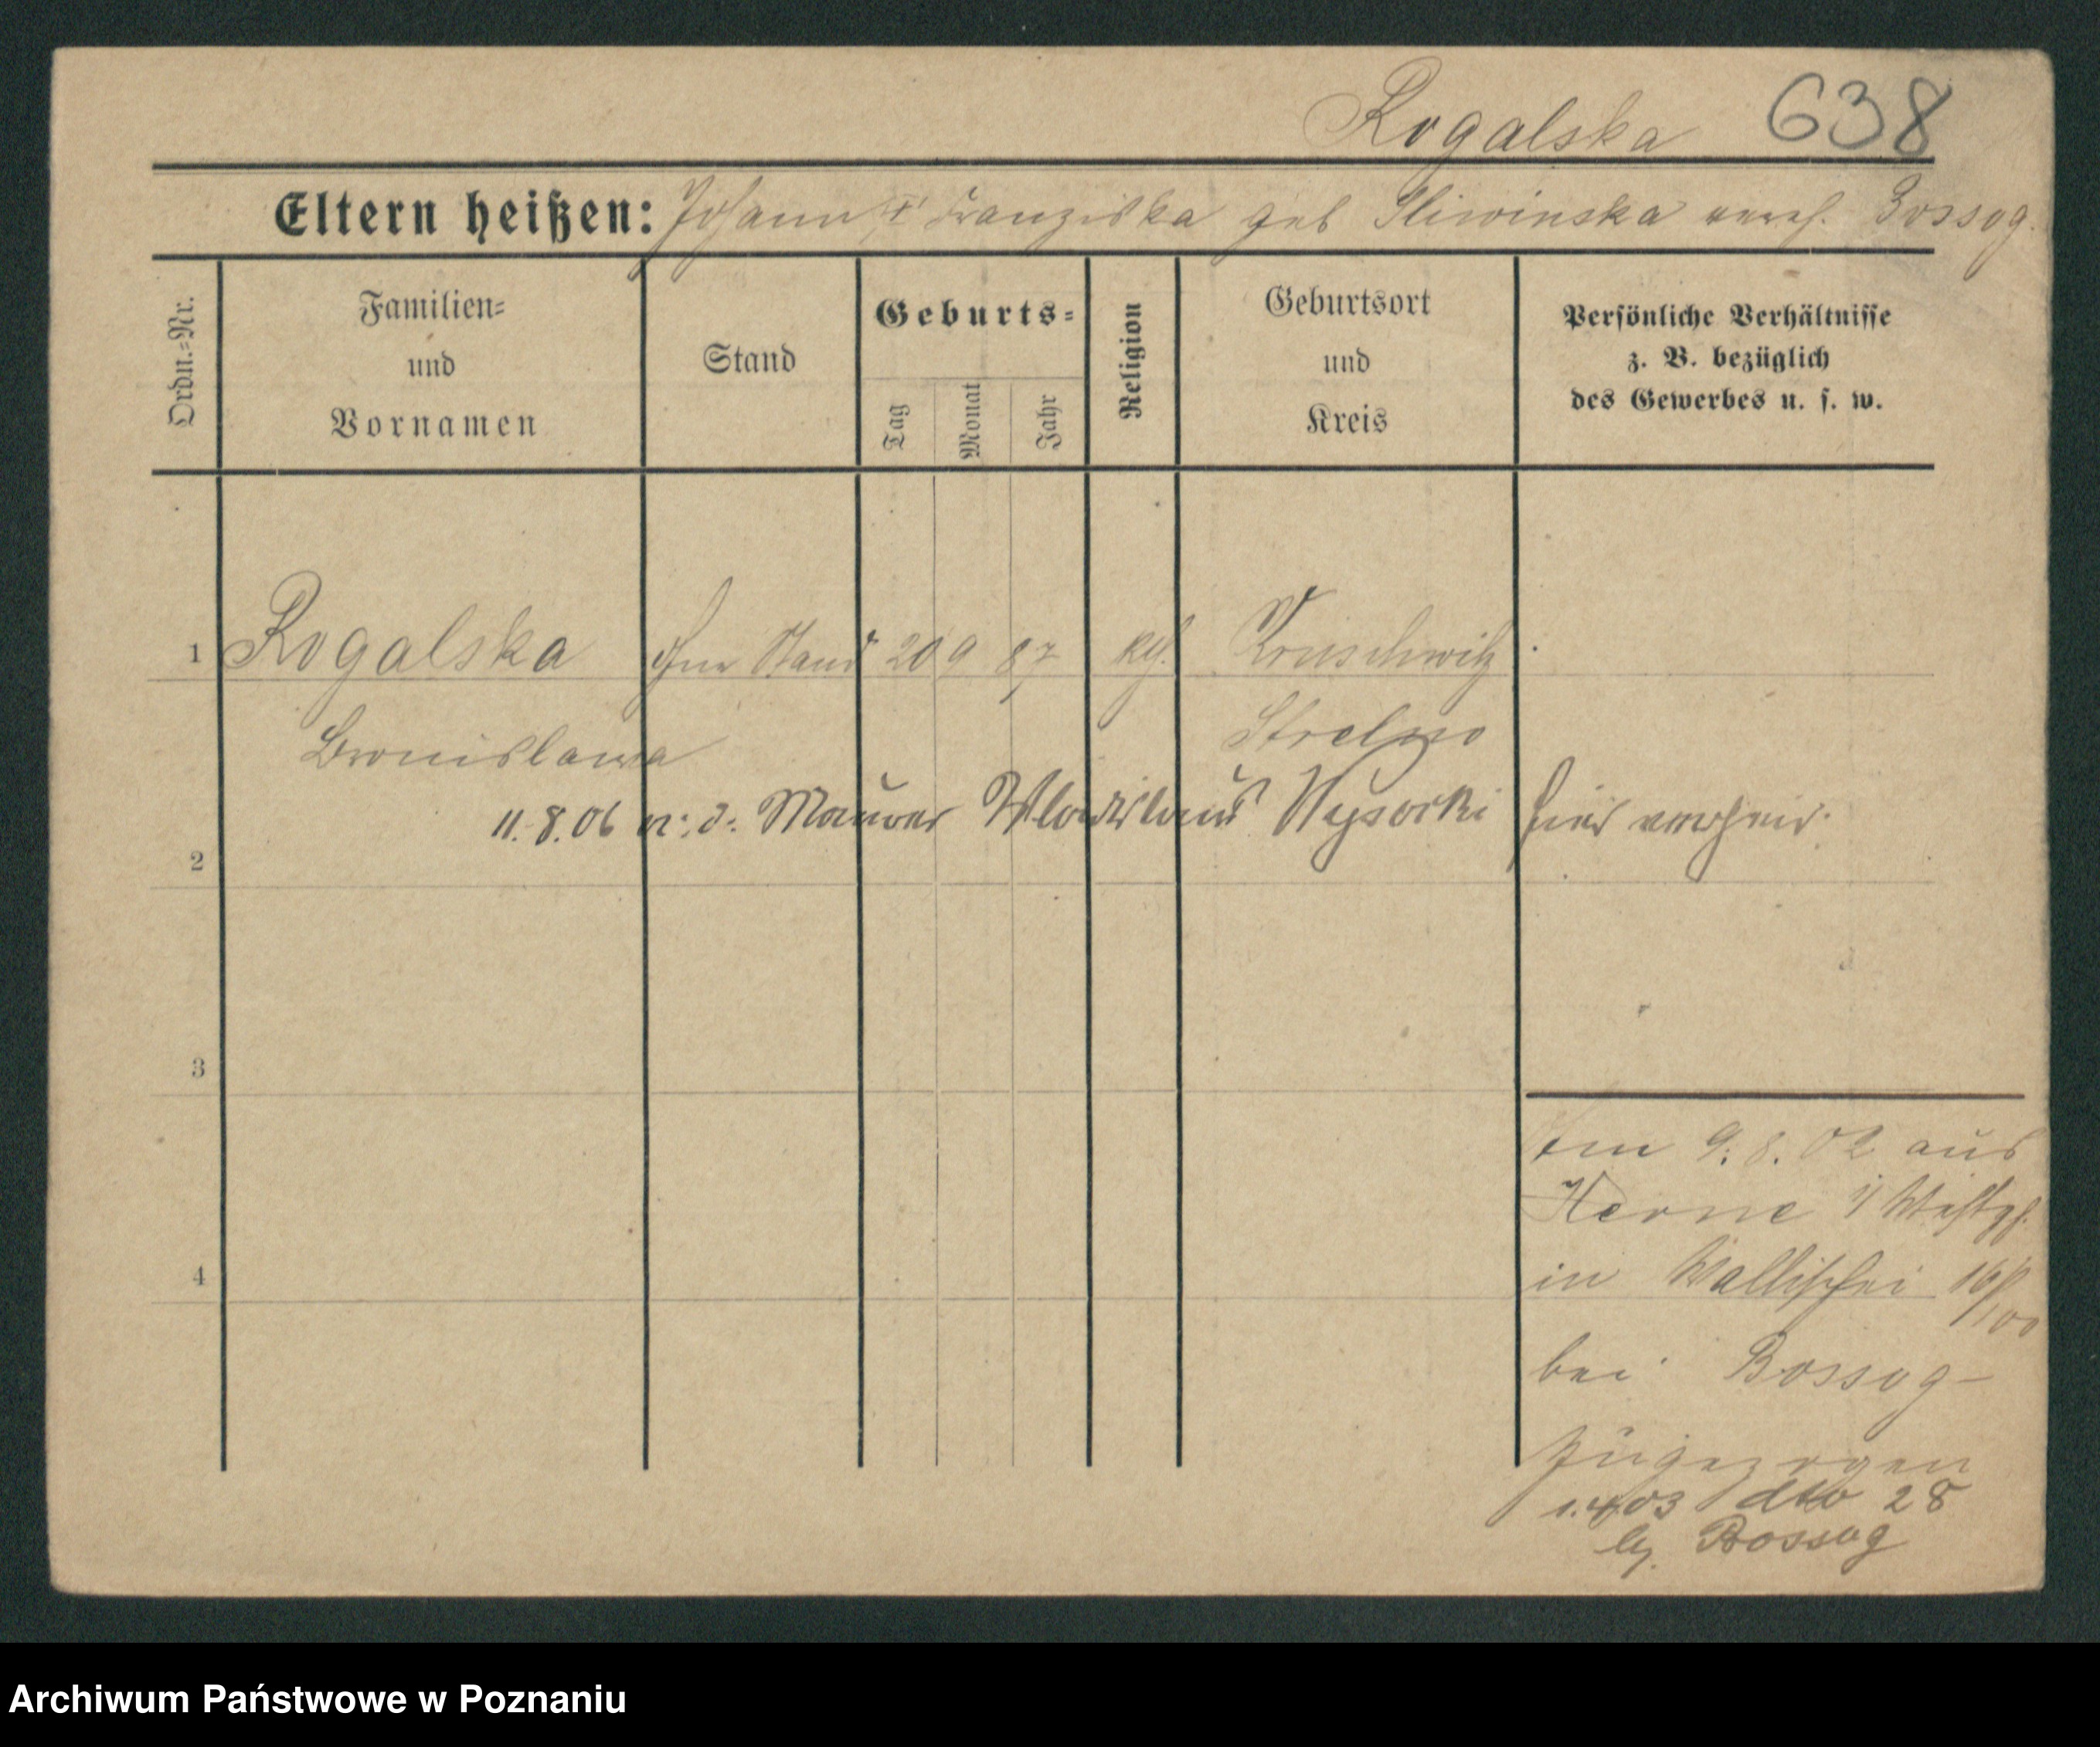 Rogalska 638
Eltern heißen: Johann & Franziska geb Sliwinska verh. Bossog.
Ordn.=Nr.
Familien=
und
Vornamen
Stand
Geburts=
Tag
Monat
Jahr
Religion
Geburtsort
und
Kreis
Persönliche Verhältnisse
z. B. bezüglich
des Gewerbes u. s. w.
1 Rogalska ohne Stand 20 9 87 kth. Kruschwitz
Bronislawa Strelno
11.8.06 m. d. Maurer Wladislaus Wysocki hier verheir.
2
3
4
am 9.8.02 aus
Herne i/ Westph.
in Wallischei 16/100
bei Bossog
zugezogen
1.4.03 dto 28
b/ Bossog
Archiwum Państwowe w Poznaniu